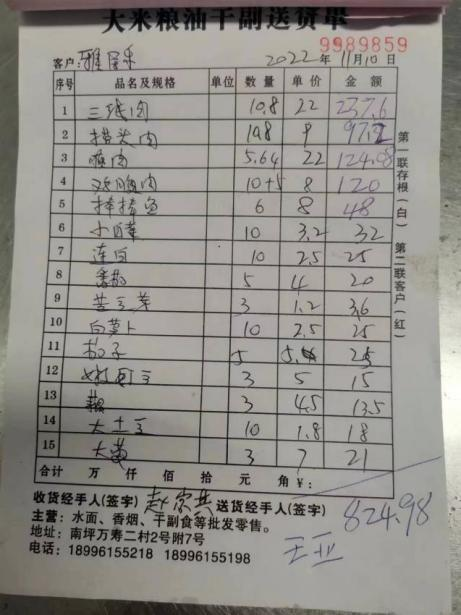 大米粮油干副送货单
9989859
客户: 雅居乐 2022年11月10日
序号 品名及规格 单位 数量 单价 金额
1 三线肉 10.8 22 237.6
2 槽头肉 10.8 9 97.2
3 瘦肉 5.64 22 124.08
4 鸡腿肉 10+5 8 120
5 棒棒鱼 6 8 48
6 小白菜 10 3.2 32
7 连白 10 2.5 25
8 番茄 5 4 20
9 苦豆芽 3 1.2 3.6
10 白萝卜 10 2.5 25
11 茄子 5 25
12 嫩豌豆 3 5 15
13 藕 3 4.5 13.5
14 大土豆 10 1.8 18
15 大黄 3 7 21
合计 万 仟 佰 拾 元 角 ¥:
824.98
收货经手人(签字) 送货经手人(签字)
主营: 水面、香烟、干副食等批发零售。
地址: 南坪万寿二村2号附7号
电话: 18996155218 18996155198
第一联存根(白) 第二联客户(红)